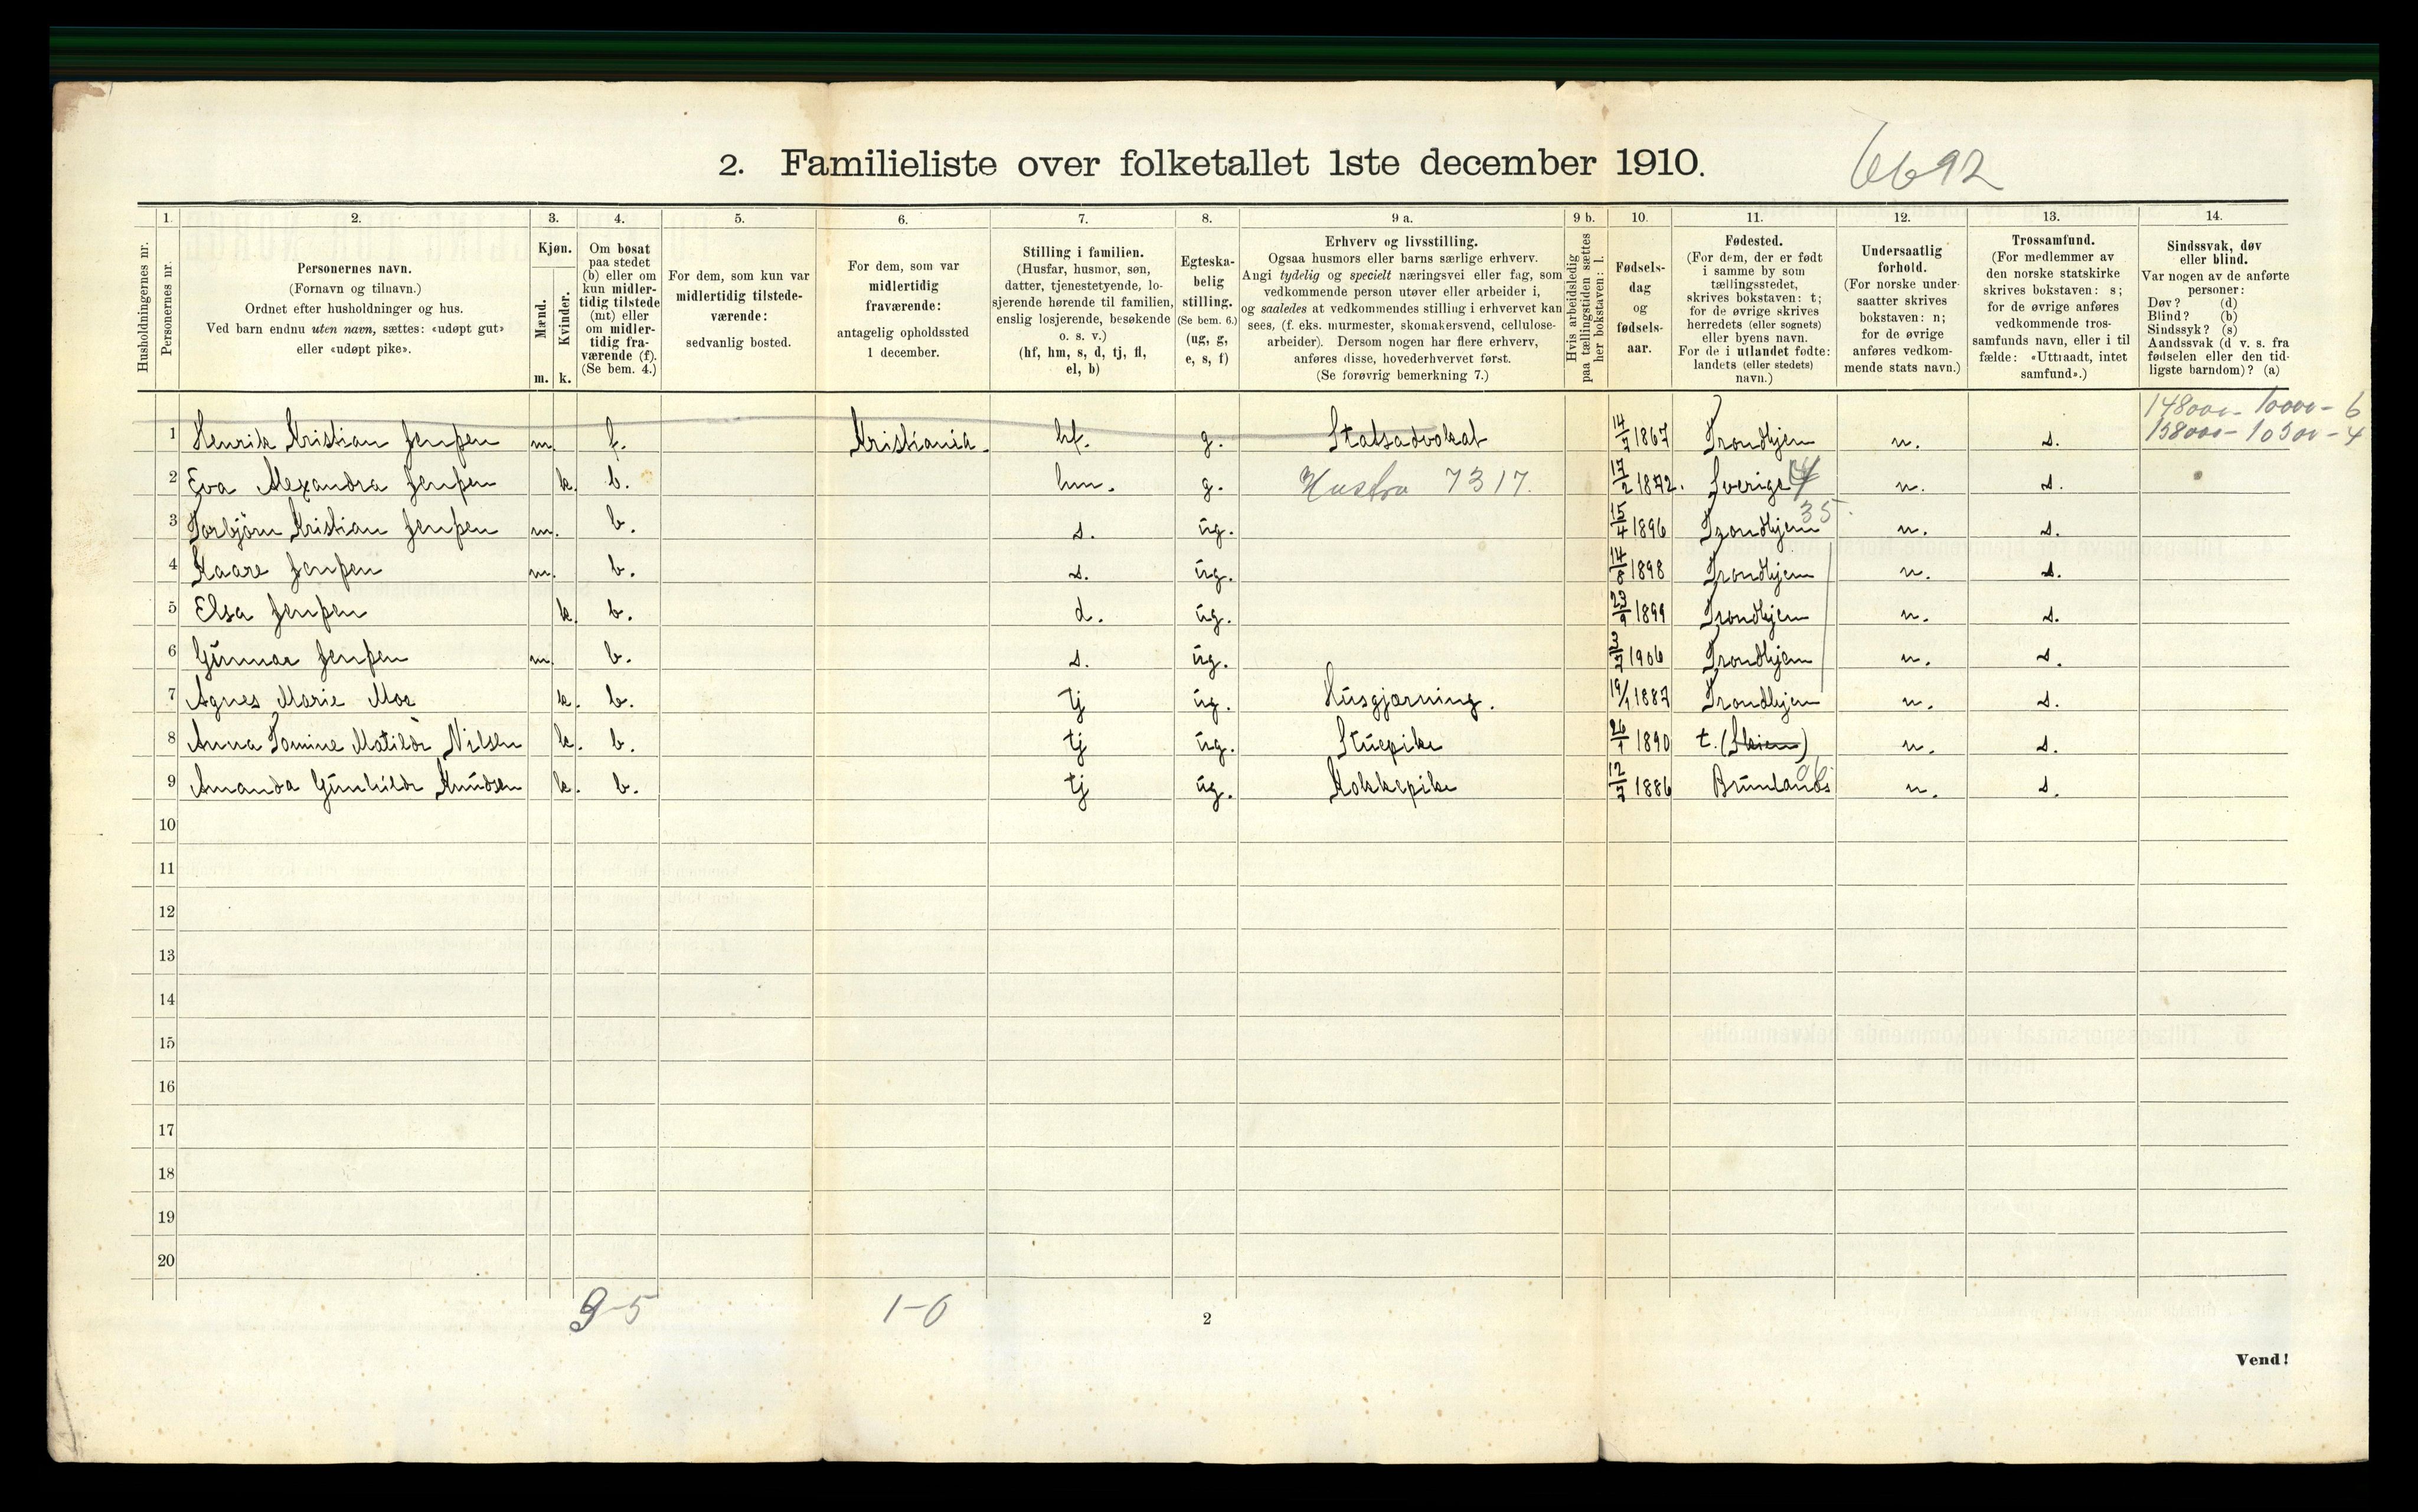 2. Familieliste over folketallet 1ste december 1910.
6692
1. 2. 3. 4. 5. 6. 7. 8. 9 a. 9 b. 10. 11. 12. 13. 14.
Husholdningernes nr.
Personernes nr.
Personernes navn.
(Fornavn og tilnavn.)
Ordnet efter husholdninger og hus.
Ved barn endnu uten navn, sættes: «udøpt gut»
eller «udøpt pike».
Kjøn.
Mænd.
Kvinder.
m. k.
Om bosat
paa stedet
(b) eller om
kun midler-
tidig tilstede
(mt) eller
om midler-
tidig fra-
værende (f).
(Se bem. 4.)
For dem, som kun var
midlertidig tilstede-
værende:
sedvanlig bosted.
For dem, som var
midlertidig
fraværende:
antagelig opholdssted
1 december.
Stilling i familien.
(Husfar, husmor, søn,
datter, tjenestetyende, lo-
sjerende hørende til familien,
enslig losjerende, besøkende
o. s. v.)
(hf, hm, s, d, tj, fl,
el, b)
Egteska-
belig
stilling.
(Se bem. 6.)
(ug, g,
e, s, f)
Erhverv og livsstilling.
Ogsaa husmors eller barns særlige erhverv.
Angi tydelig og specielt næringsvei eller fag, som
vedkommende person utøver eller arbeider i,
og saaledes at vedkommendes stilling i erhvervet kan
sees, (f. eks. murmester, skomakersvend, cellulose-
arbeider). Dersom nogen har flere erhverv,
anføres disse, hovederhvervet først.
(Se forøvrig bemerkning 7.)
Hvis arbeidsledig
paa tællingstiden sættes
her bokstaven: l.
Fødsels-
dag
og
fødsels-
aar.
Fødested.
(For dem, der er født
i samme by som
tællingsstedet,
skrives bokstaven: t;
for de øvrige skrives
herredets (eller sognets)
eller byens navn.
For de i utlandet fødte:
landets (eller stedets)
navn.)
Undersaatlig
forhold.
(For norske under-
saatter skrives
bokstaven: n;
for de øvrige
anføres vedkom-
mende stats navn.)
Trossamfund.
(For medlemmer av
den norske statskirke
skrives bokstaven: s;
for de øvrige anføres
vedkommende tros-
samfunds navn, eller i til
fælde: «Uttraadt, intet
samfund».)
Sindssvak, døv
eller blind.
Var nogen av de anførte
personer:
Døv? (d)
Blind? (b)
Sindssyk? (s)
Aandssvak (d. v. s. fra
fødselen eller den tid-
ligste barndom)? (a)
148000 - 10000 - 6
158000 - 10500 - 4
1 Henrik Kristian Jenssen m. f. Kristiania. hf. g. Statsadvokat 14/7 1867 Trondhjem n. s.
2 Eva Alexandra Jenssen k. b. hm. g. Hustru 7317. 17/2 1872. Sverige n. s.
35
3 Torbjörn Kristian Jenssen m. b. s. ug. 15/4 1896 Trondhjem n. s.
4 Kaare Jenssen m. b. s. ug. 14/8 1898 Trondhjem n. s.
5 Elsa Jenssen k. b. d. ug. 23/9 1899 Trondhjem n. s.
6 Gunnar Jenssen m. b. s. ug. 1906 Trondhjem n. s.
7 Agnes Marie Moe k. b. tj ug. Husgjærning. 19/1 1887 Trondhjem n. s.
8 Anna Tomine Matilde Nilsen k. b. tj ug. Stuepike 26/1 1890 t. (Skien) n. s.
9 Amanda Gunhilde Knudsen k. b. tj ug. Kokkepike 12/7 1886 Brunlands n. s.
10
11
12
13
14
15
16
17
18
19
20
9-5 1-0
2
Vend!